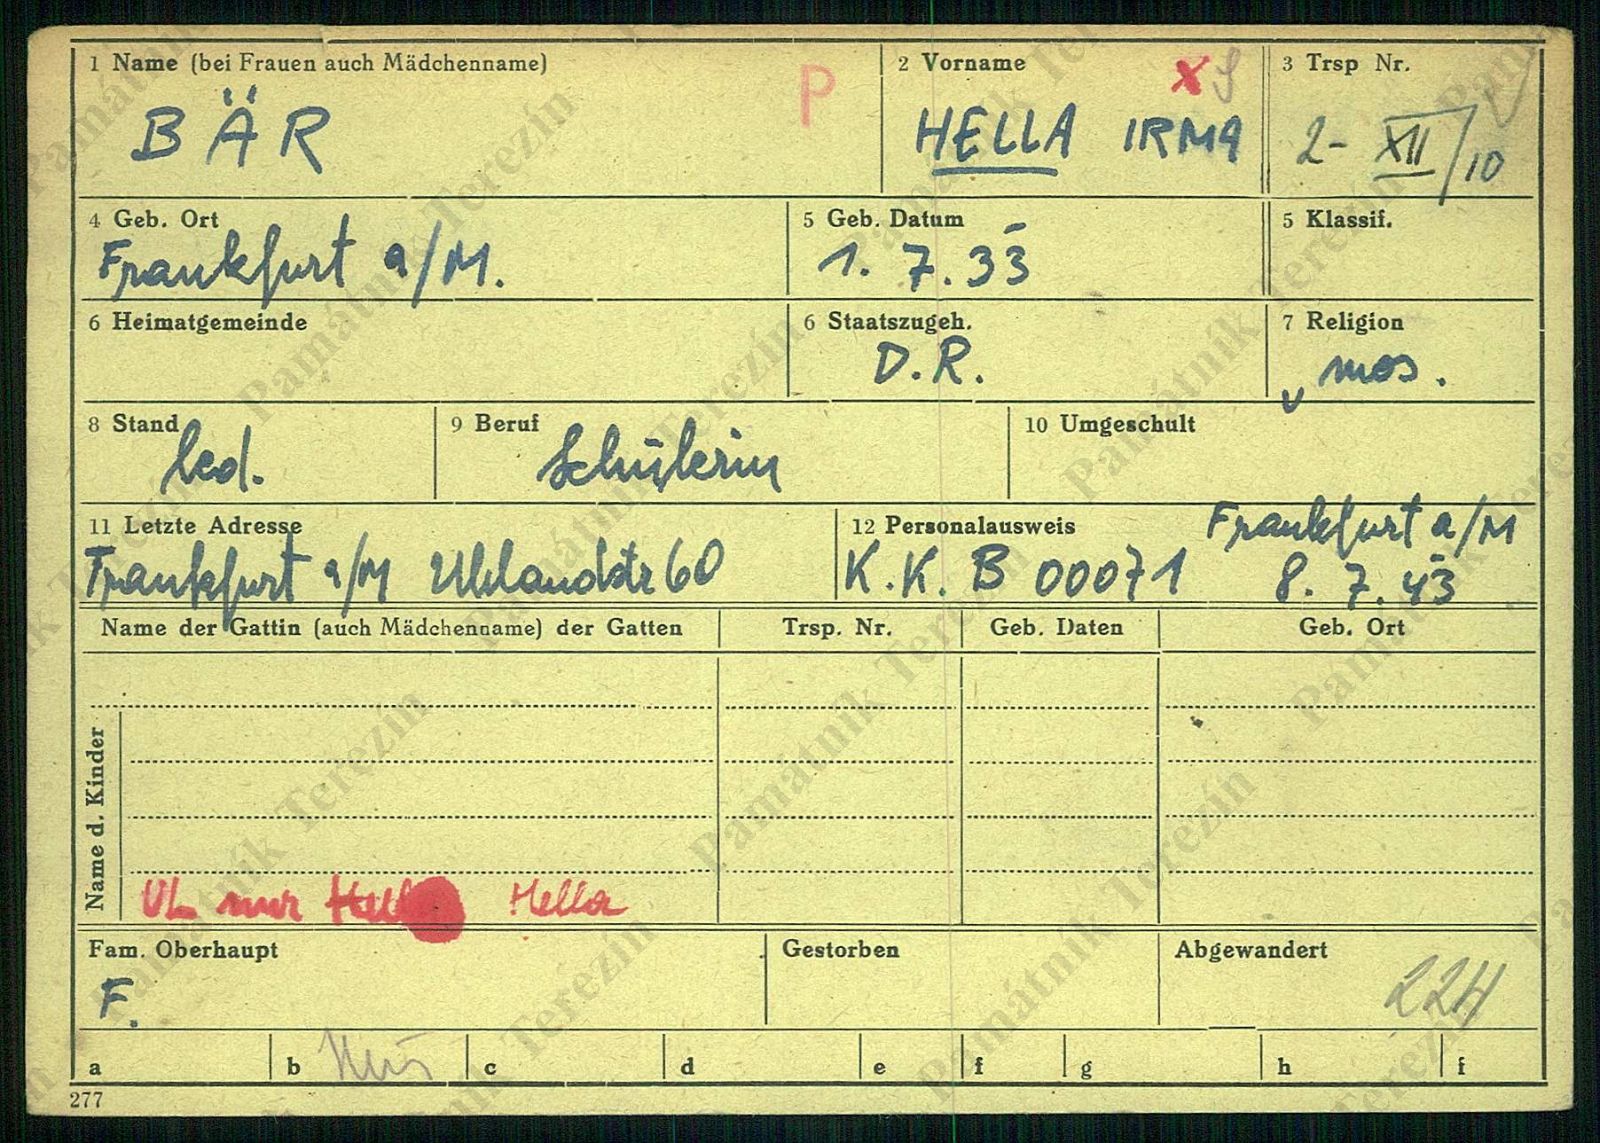 1 Name (bei Frauen auch Mädchenname)
BÄR
P
2 Vorname
X
HELLA IRMA
3 Trsp Nr.
2- XII/10
4 Geb. Ort
Frankfurt a/M.
5 Geb. Datum
1. 7. 33
5 Klassif.
6 Heimatgemeinde
6 Staatszugeh.
D.R.
7 Religion
mos.
8 Stand
led.
9 Beruf
Schülerin
10 Umgeschult
11 Letzte Adresse
Frankfurt a/M Uhlandstr 60
12 Personalausweis
Frankfurt a/M
K.K. B 00071 8. 7. 43
Name der Gattin (auch Mädchenname) der Gatten
Trsp. Nr.
Geb. Daten
Geb. Ort
Name d. Kinder
VL nur Hella
Fam. Oberhaupt
F.
Gestorben
Abgewandert
224
a
b
c
d
e
f
g
h
i
277
Památník Terezín